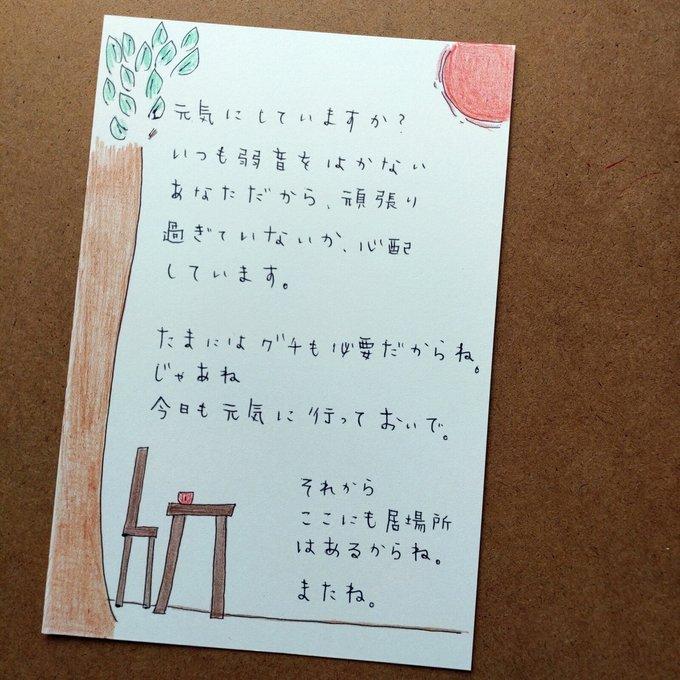 元気にしていますか?
いつも弱音をはかない
あなただから、頑張り
過ぎていないか、心配
しています。
たまにはグチも必要だからね。
じゃあね
今日も元気に行っておいで。
それから
ここにも居場所
はあるからね。
またね。